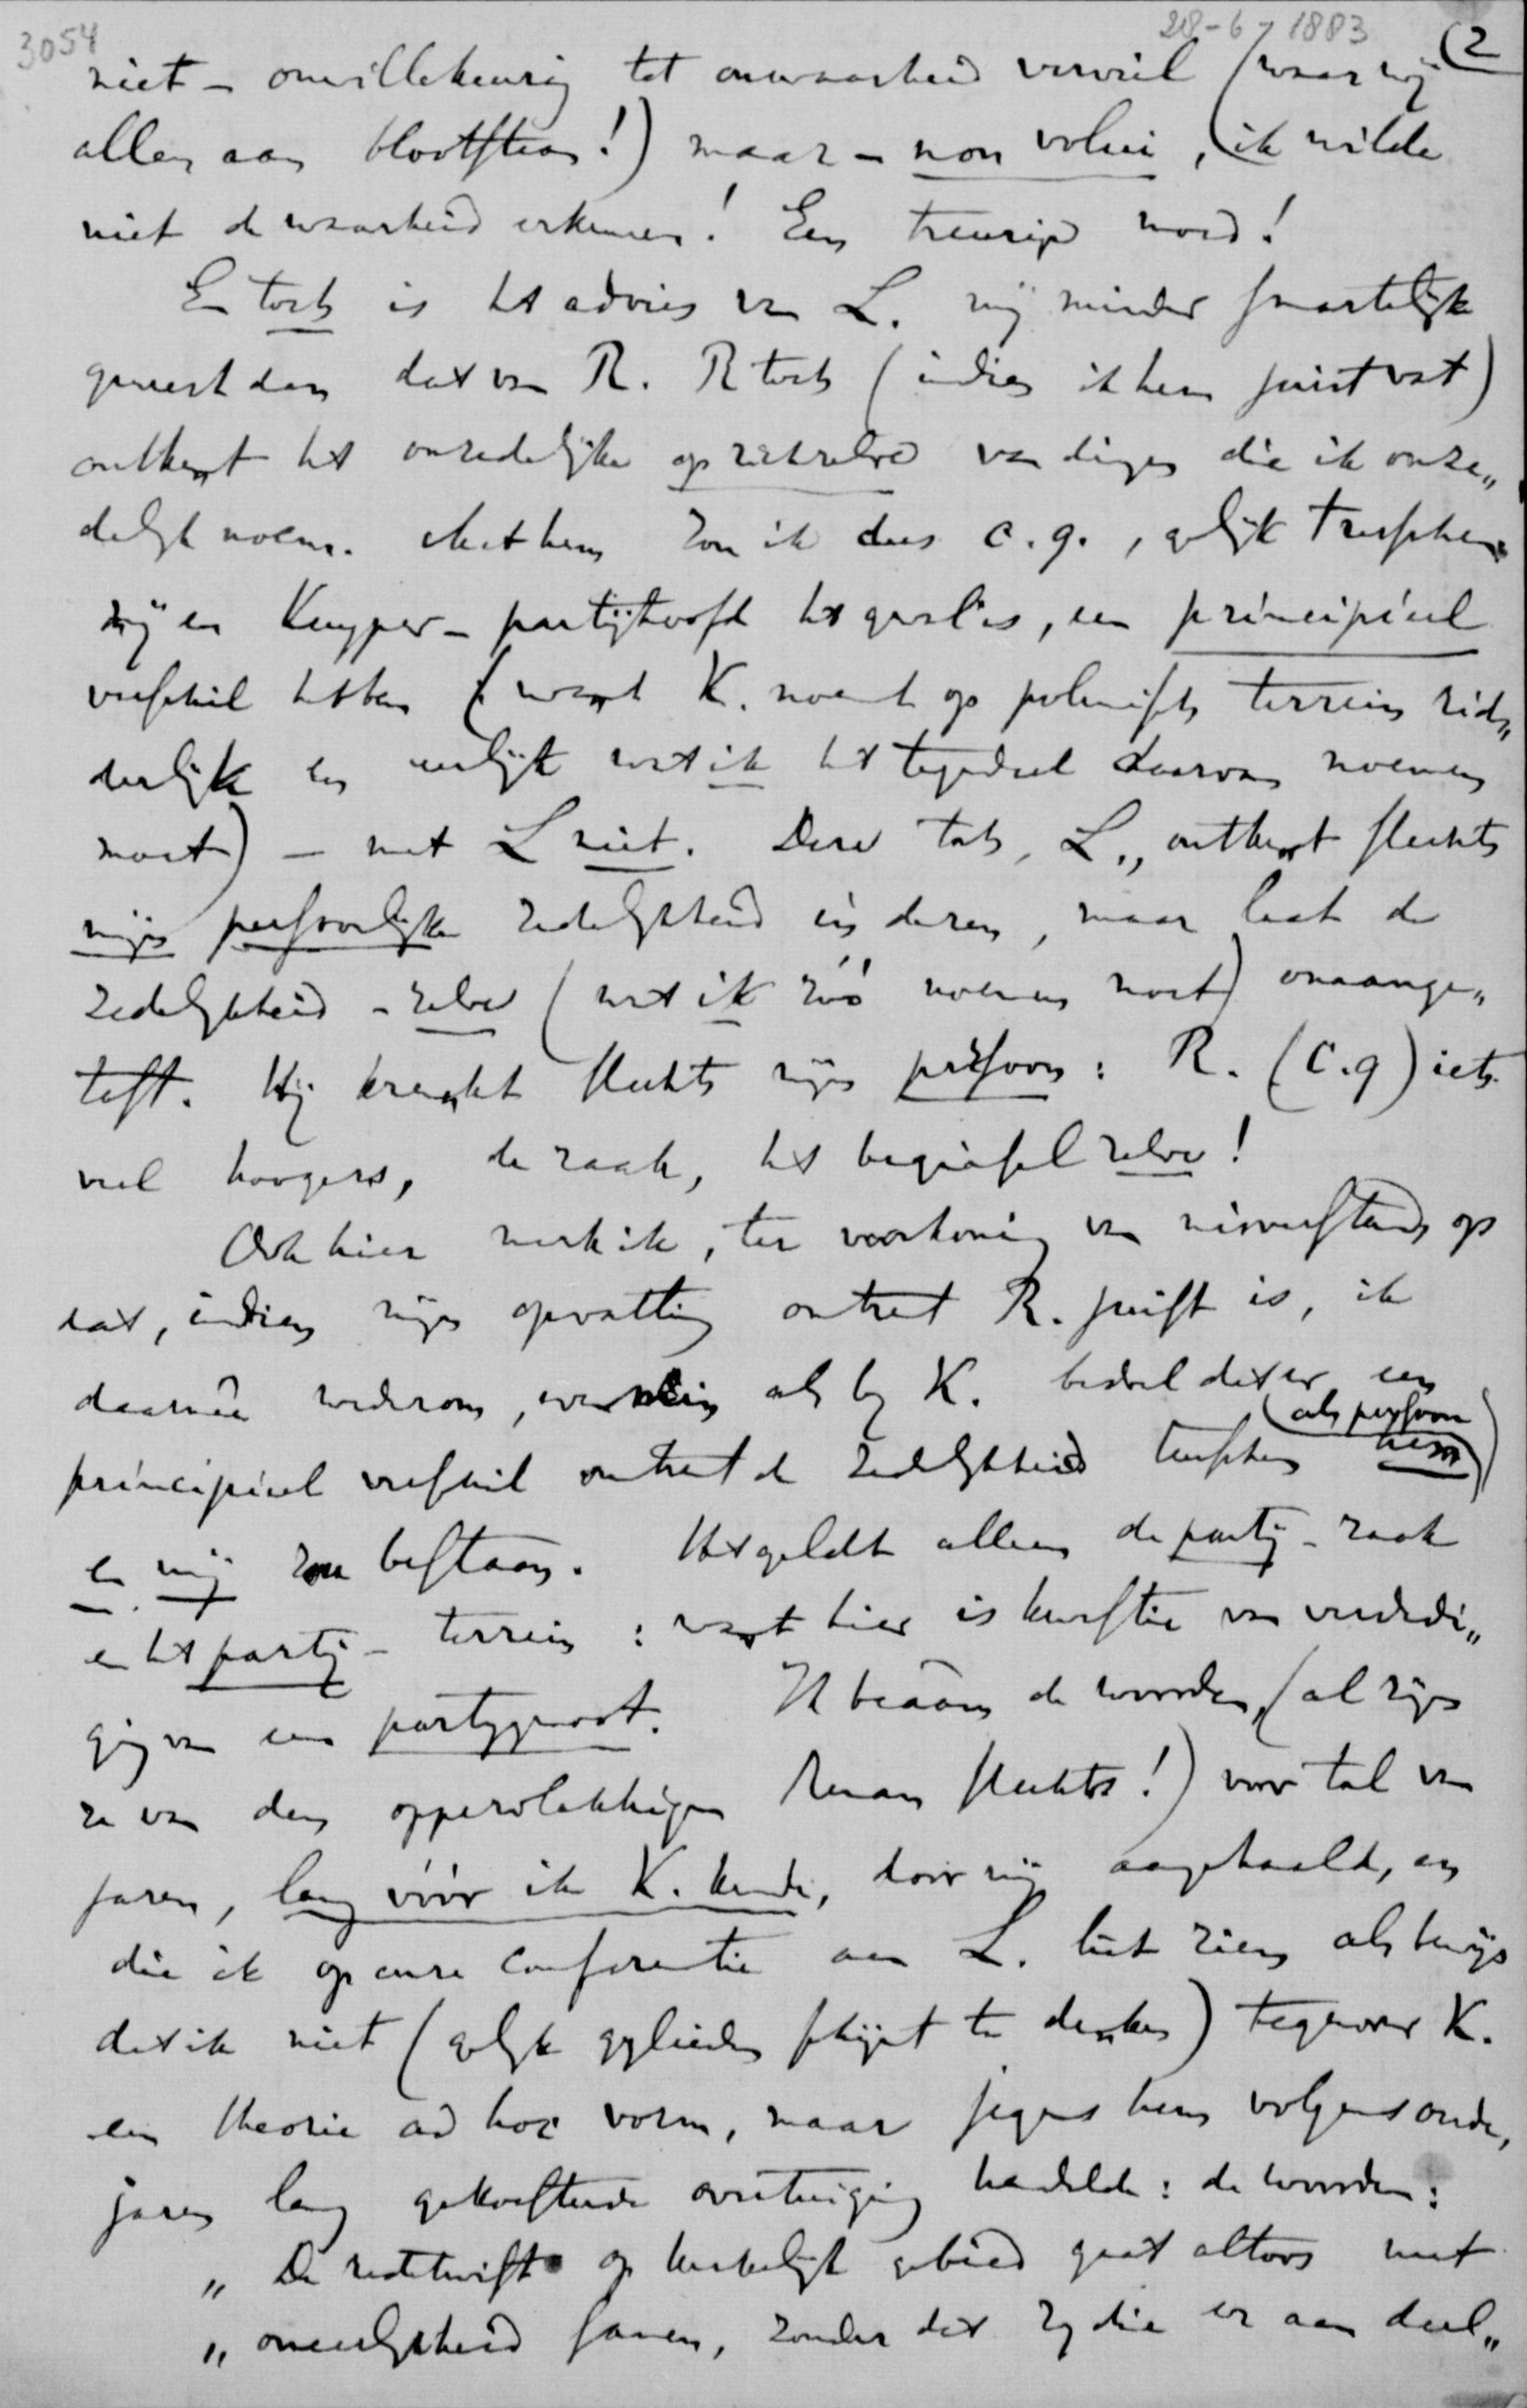 3054
28-6-1883
(2
niet - onwillekeurig tot onwaarheid verviel (waar wij
allen aan blootstaan!) maar - non volui, ik wilde
niet de waarheid erkennen! Een treurig woord!
En toch is het advies van L. mij minder smartelijk
geweest dan dat van R. R toch (indien ik hem juist vat)
ontkent het onzedelijke op zichzelve van dingen die ik onze„
delijk noem. Met hem zou ik dus c.q., gelijk tusschen
mij en Kuyper - partijhoofd het geval is, een principieel
verschil hebben (want K. noemt op polemisch terrein rid„
derlijk en eerlijk wat ik het tegendeel daarvan noemen
moet) - met L niet. Deze toch, L., ontkent slechts
mijn persoonlijke zedelijkheid in dezen, maar laat de
zedelijkheid - zelve (wat ik zóó noemen moet) onaange„
tast. Hij krenkt slechts mijn persoon: R. (c.q) iets
veel hoogers, de zaak, het beginsel zelve!
Ook hier merk ik, ter voorkoming van misverstand, op
dat, indien mijn opvatting omtrent R. juist is, ik
daarmeê wederom, evenmin als bij K. bedoel dat er een
(als persoon
principieel verschil omtrent de zedelijkheid tusschen hem)
en mij zou bestaan. Het geldt alleen de partij - zaak
en het partij - terrein: want hier is kwestie van verdedi„
ging van een partijgenoot. Ik beaâm de woorden, (al zijn
ze van den oppervlakkigen Renan slechts!) voor tal van
jaren, lang vóór ik K. kende, door mij aangehaald, en
die ik op onze conferentie aan L. liet zien als bewijs
dat ik niet (gelijk gylieden schijnt te denken) tegenover K.
een theorie ad hoc vorm, maar jegens hem volgens oude,
jaren lang gekoesterde overtuiging handelde: de woorden:
„ De redetwist op kerkelijk gebied gaat altoos met
„ oneerlijkheid samen, zonder dat zij die er aan deel„